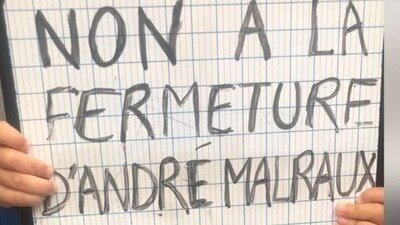 NON A LA
FERMETURE
D'ANDRÉ MALRAUX